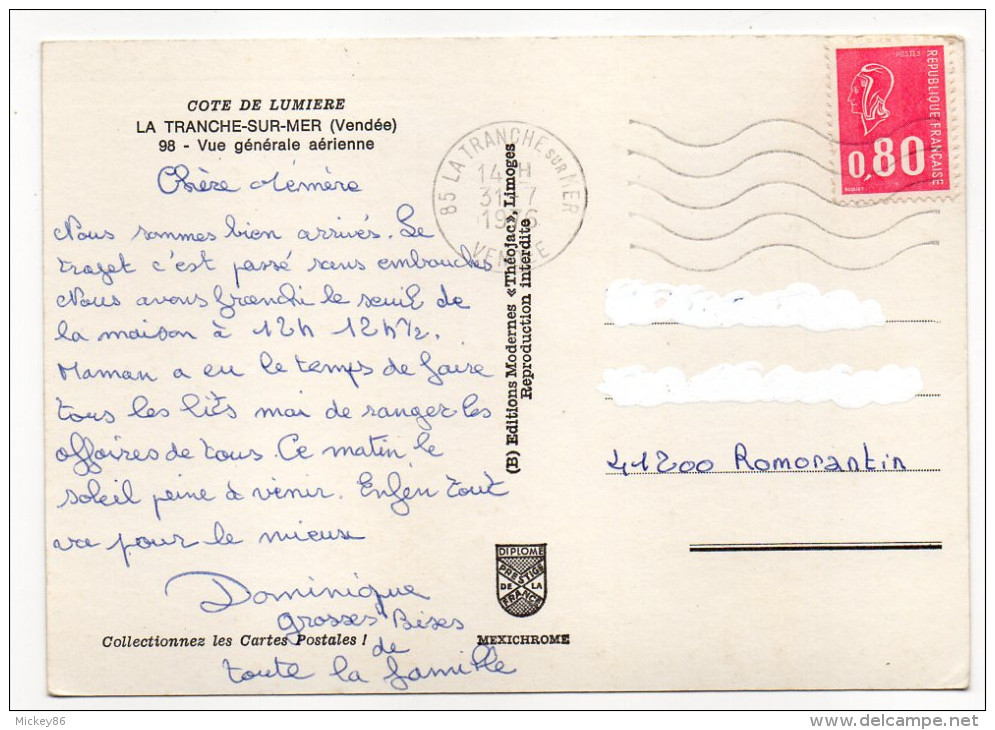 COTE DE LUMIERE
LA TRANCHE-SUR-MER (Vendée)
98 - Vue générale aérienne
Chère Mémère
Nous sommes bien arrivés. Le
trajet c'est passé sans embouches
Nous avons franchi le seuil de
la maison à 12h 12h½.
Maman a eu le temps de faire
tous les lits mai de ranger les
affaires de tous. Ce matin le
soleil peine à venir. Enfen tout
va pour le mieux
Dominique
grosses Bises
de
toute la famille
Collectionnez les Cartes Postales !
85 LA TRANCHE SUR MER
14 H
31 7
1976
VENDEE
(B) Editions Modernes «Théojac», Limoges
Reproduction interdite
DIPLOME
PRESTIGE
DE LA
FRANCE
MEXICHROME
POSTES
REPUBLIQUE FRANÇAISE
0,80
41200 Romorantin
Mickey86
delcampe.net